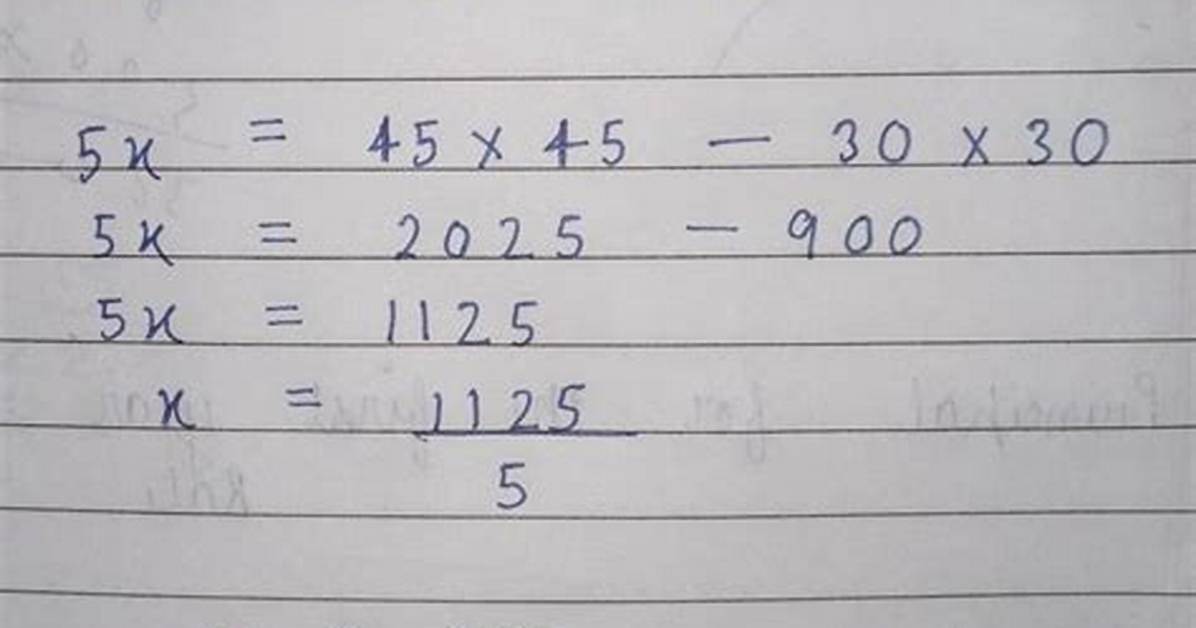 5x = 45 x 45 - 30 x 30
5x = 2025 - 900
5x = 1125
x = 1125
5